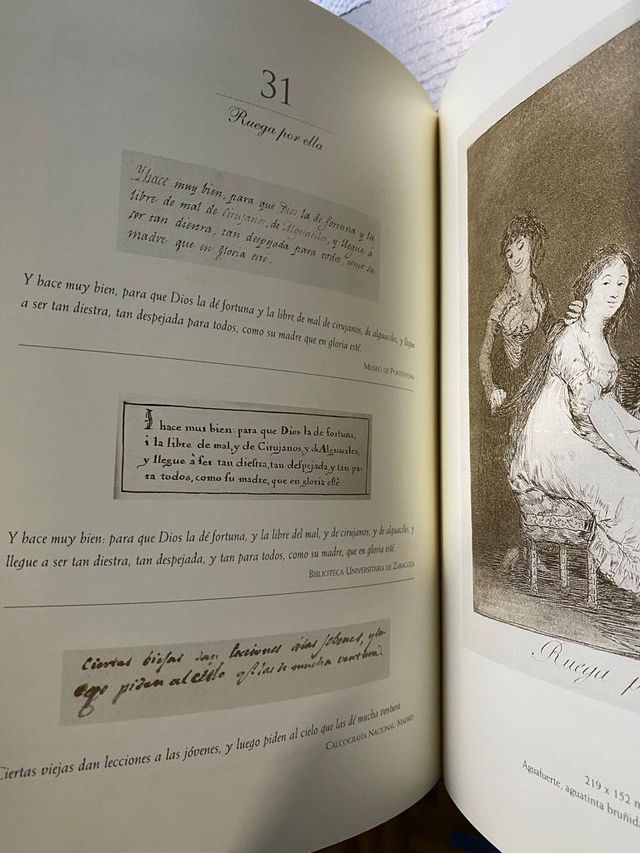 31
Ruega por ella
Y hace muy bien, para que Dios la de fortuna y la
libre de mal de Cirujanos, de Alguaciles, y llegue à
ser tan diestra, tan despejada para todos, como su
madre que en gloria esté.
Y hace muy bien, para que Dios la dé fortuna y la libre de mal de cirujanos, de alguaciles, y llegue
a ser tan diestra, tan despejada para todos, como su madre que en gloria esté.
Museo de Pontevedra
I hace mui bien: para que Dios la de fortuna,
i la libre de mal, y de Cirujanos, y de Alguaciles,
y llegue à ser tan diestra, tan despejada, y tan pa-
ra todos, como su madre, que en gloria esté
Y hace muy bien: para que Dios la dé fortuna, y la libre del mal, y de cirujanos, y de alguaciles, y
llegue a ser tan diestra, tan despejada, y tan para todos, como su madre, que en gloria esté.
Biblioteca Universitaria de Zaragoza
Ciertas biejas dan lecciones a las jobenes, y lu
ego piden al cielo q.e las de mucha ventura.
Ciertas viejas dan lecciones a las jóvenes, y luego piden al cielo que las dé mucha ventura.
Calcografía Nacional. Madrid
Ruega p
219 x 152 m
Aguafuerte, aguatinta bruñida